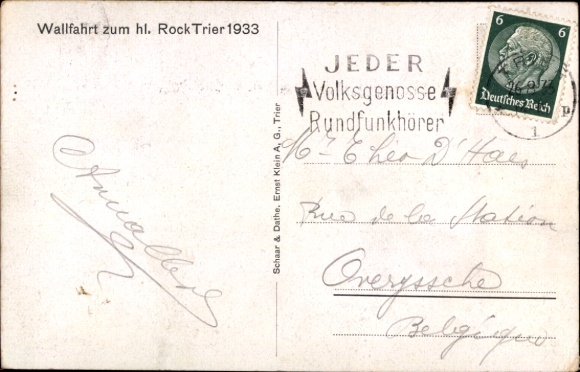 Wallfahrt zum hl. Rock Trier 1933
6 6
Deutsches Reich
JEDER
Volksgenosse
Rundfunkhörer
1
Schaar & Dathe, Ernst Klein A, G., Trier
Mr Théo D'Haes
Rue de la Station
Overyssche
Belgique